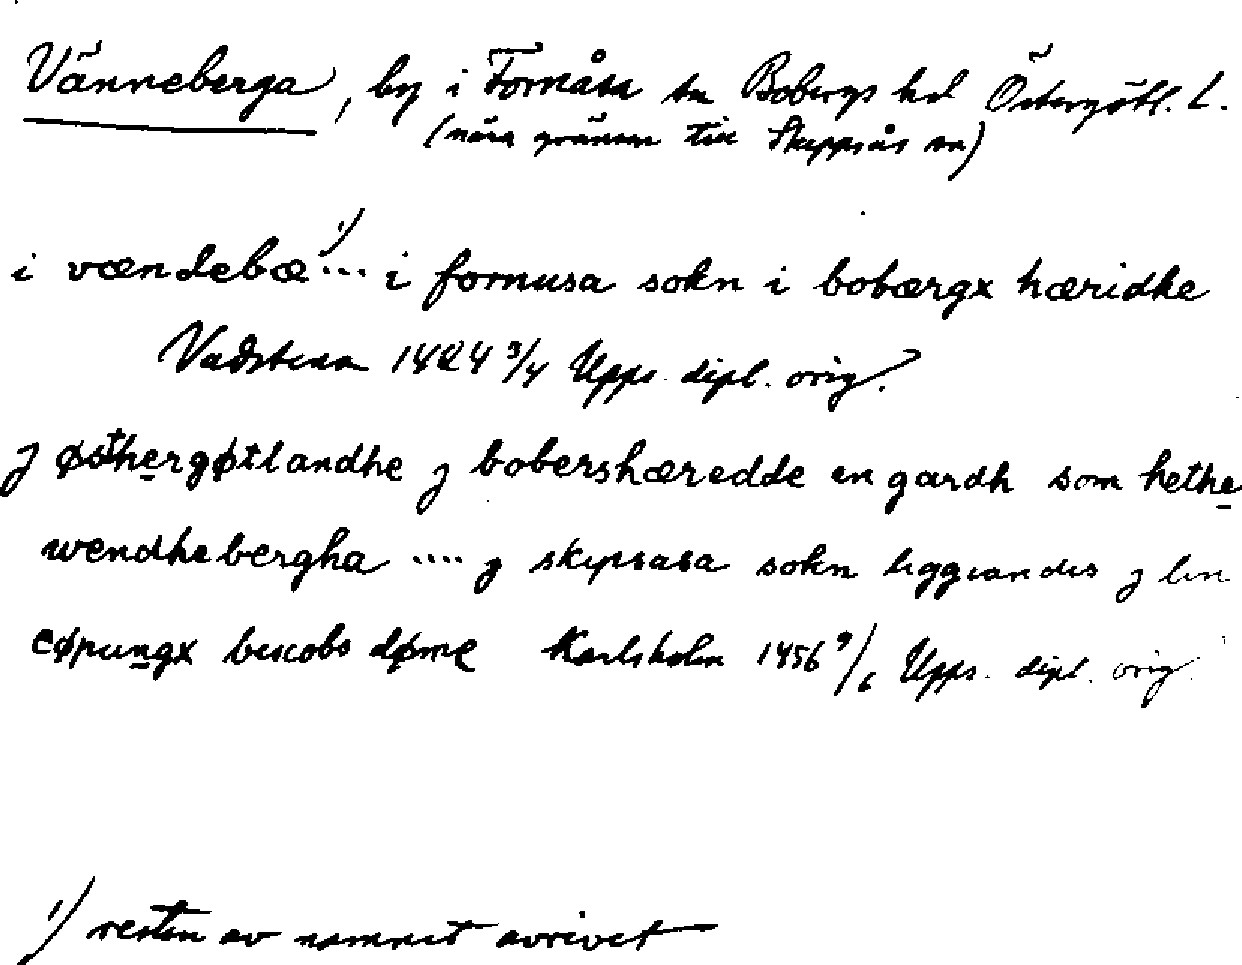 Vänneberga, by i Fornåsa sn Bobergs hd Östergötl. L.
(nära gränsen till Skeppsås sn)
i vændebæ¹⁾... i fornusa sokn i bobærgx hæridhe
Vadstena 1424 3/4 Upps. dipl. orig.
j østhergøtlandhe j bobershæredde en gardh som hethe
wendhebergha .... j skipsasa sokn liggiandis j lin
cøpungx biscobs døme Karlsholm 1456 9/6 Upps. dipl. orig.
¹⁾ resten av namnet avrivet